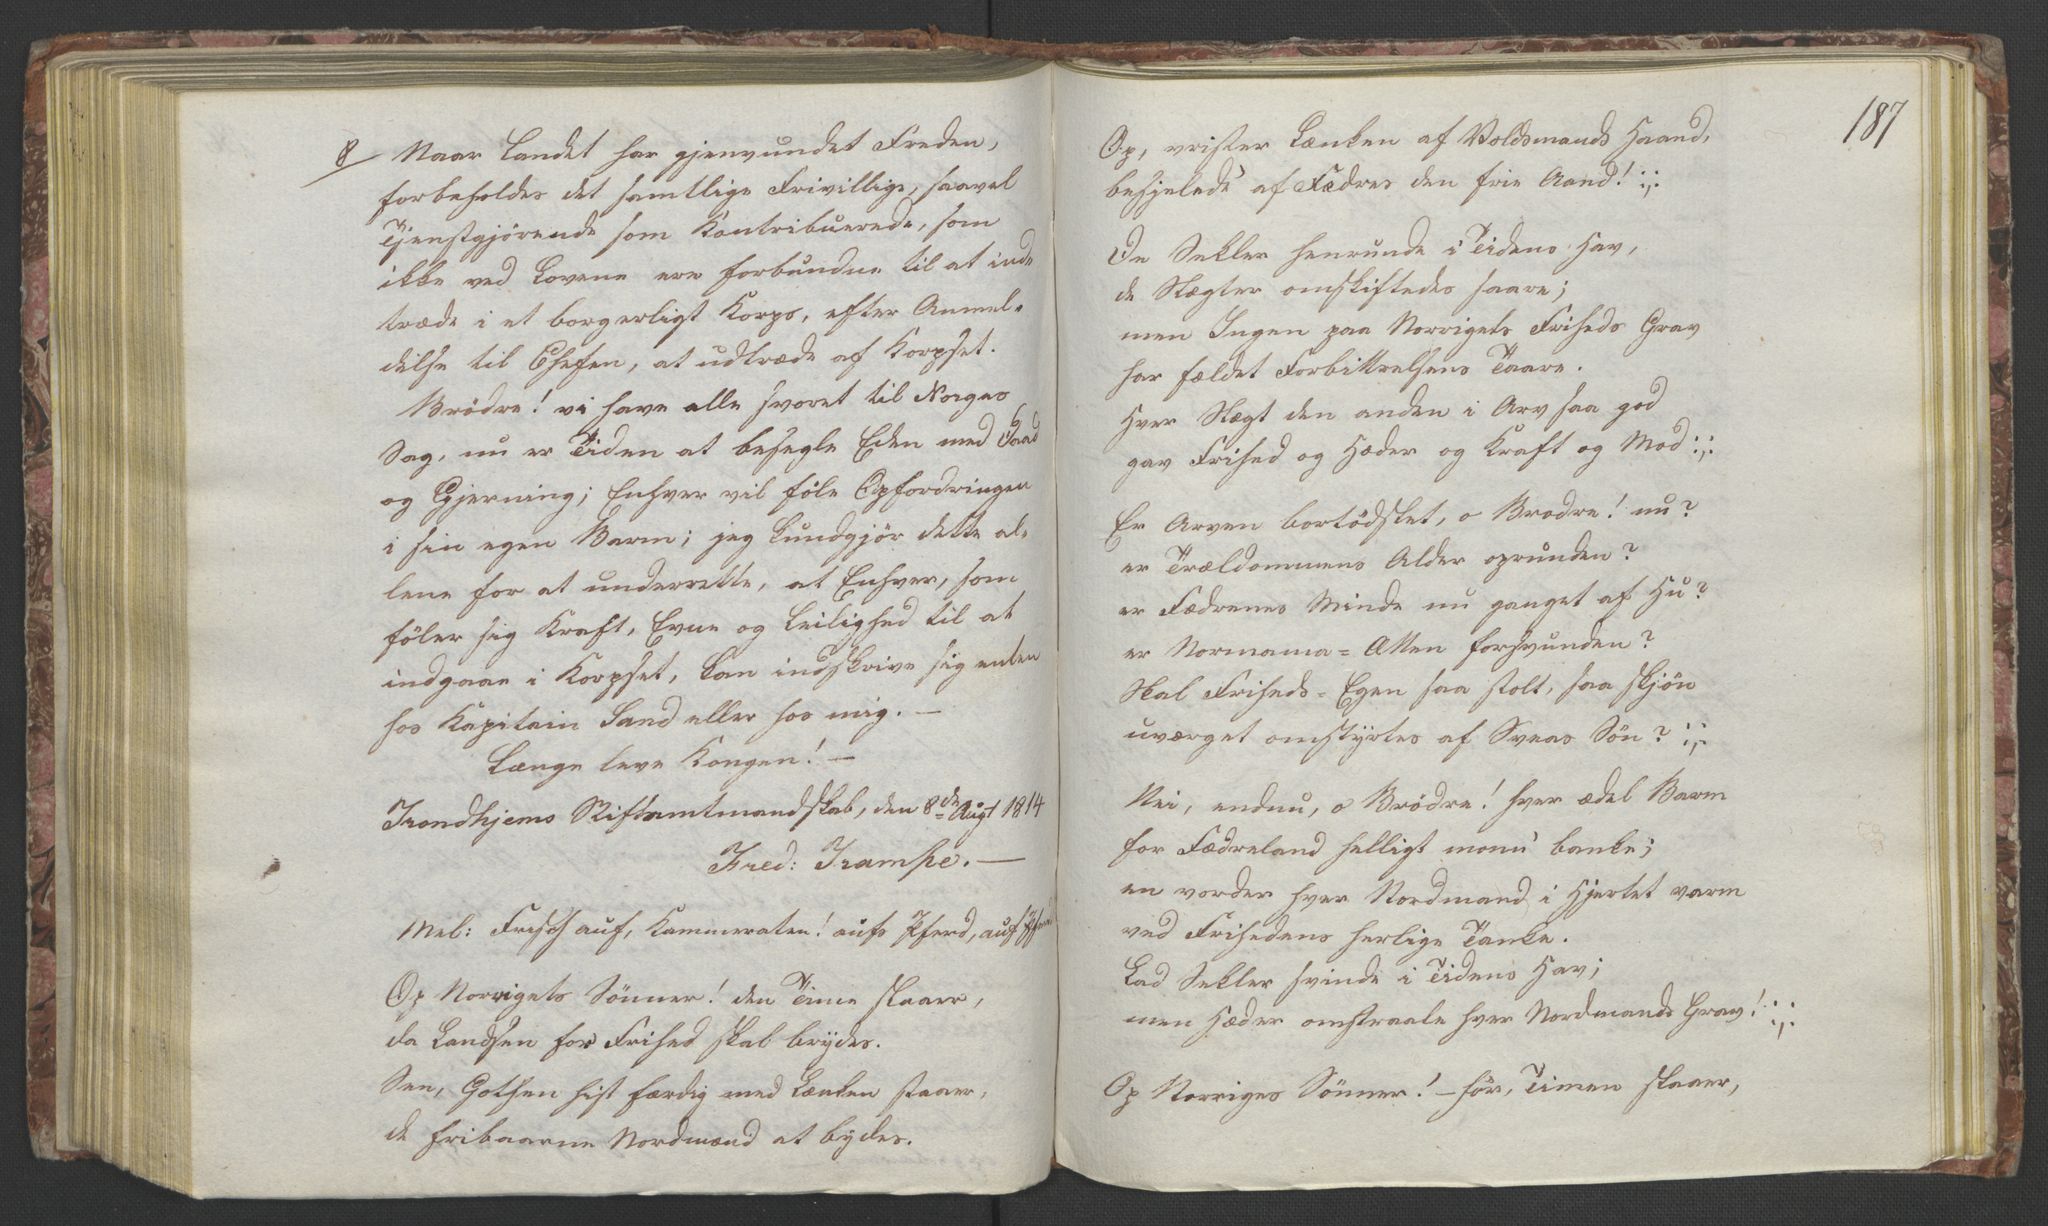 8 Naar Landet har gjenvundet Freden,
forbeholdes det samtlige Frivillige, saavel
Tjenstgjörende som Kontribuerede, som
ikke ved Lovene ere forbundne til at ind-
træde i et borgerligt Korps, efter Anmel-
delse til Chefen, at udtræde af Korpset.
Brödre! vi have alle svoret til Norges
Sag, nu er Tiden at besegle Eden med Daad
og Gjerning; Enhver vil föle Opfordringen
i sin egen Barm; jeg kundgjör dette al-
lene for at underrette, at Enhver, som
föler sig Kraft, Evne og Leilighed til at
indgaae i Korpset, kan indskrive sig enten
hos Kapitain Sand eller hos mig. —
Længe leve Kongen! —
Trondhjems Stiftamtmandskab, den 8de Augt 1814
Fred: Trampe. —
Mel: Frisch auf, Kammeraten! aufs Pferd, aufs Pferd
Op Norrigets Sönner! den Time slaaer,
da Landsen for Frihed skal brydes.
Seer, Gothen hist færdig med Lænken staaer,
de fribaarne Nordmænd at bydes.
187
Op, vrister Lænken af Voldsmands Haand,
besjelede af Fædres den frie Aand! :;:
De Sekler henrunde i Tidens Hav,
de Slægter omskiftedes saare;
men Ingen paa Norrigets Friheds Grav
har fældet Forbittrelsens Taare.
Hver Slægt den anden i Arv saa god
gav Frihed og Hæder og Kraft og Mod :;:
Er Arven bortödslet, o Brødre! nu?
er Trældommens Alder oprunden?
er Fædrenes Minde nu ganget af Hu?
er Normanna=Ætten forsvunden?
Skal Friheds=Egen saa stolt, saa skjön
uværget omstyrtes af Sveas Sön? :;:
Nei, endnu, o Brödre! hver ædel Barm
for Fædreland helligt monne banke;
en vorder hver Nordmand i Hjertet varm
ved Frihedens herlige Tanke.
Lad Sekler svinde i Tidens Hav;
men Hæder omstraale hver Nordmands Grav! :;:
Op Norriges Sönner! — hör, Timen slaaer,